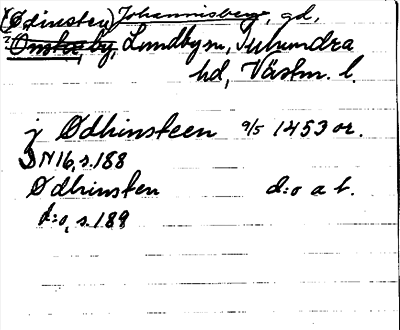 (Ødinsten) Johannisberg, gd,
Lundby sn, Tuhundra
hd, Västm. l.
j Ødhinsteen 9/5 1453 or.
DN 16, s. 188
Ødhinsten d:o a b.
d:o, s. 189